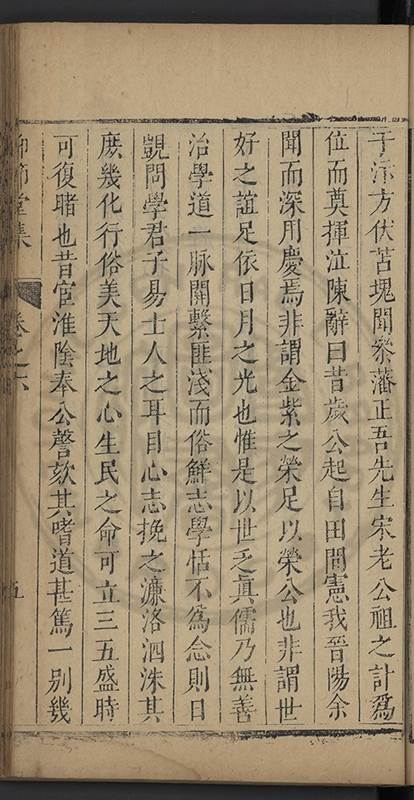 于汴方伏苫塊聞叅藩正吾先生宋老公祖之訃爲
位而奠揮泣陳辭曰昔歲公起自田間憲我晉陽余
聞而深用慶焉非謂金紫之榮足以榮公也非謂世
好之誼足依日月之光也惟是以世乏真儒乃無善
治學道一脉關繫匪淺而俗鮮志學恬不爲念則日
覬問學君子易士人之耳目心志挽之濂洛泗洙其
庶幾化行俗美天地之心生民之命可立三五盛時
可復睹也昔宦淮隂奉公謦欬其嗜道甚篤一别幾
仰節堂集
卷之六
五